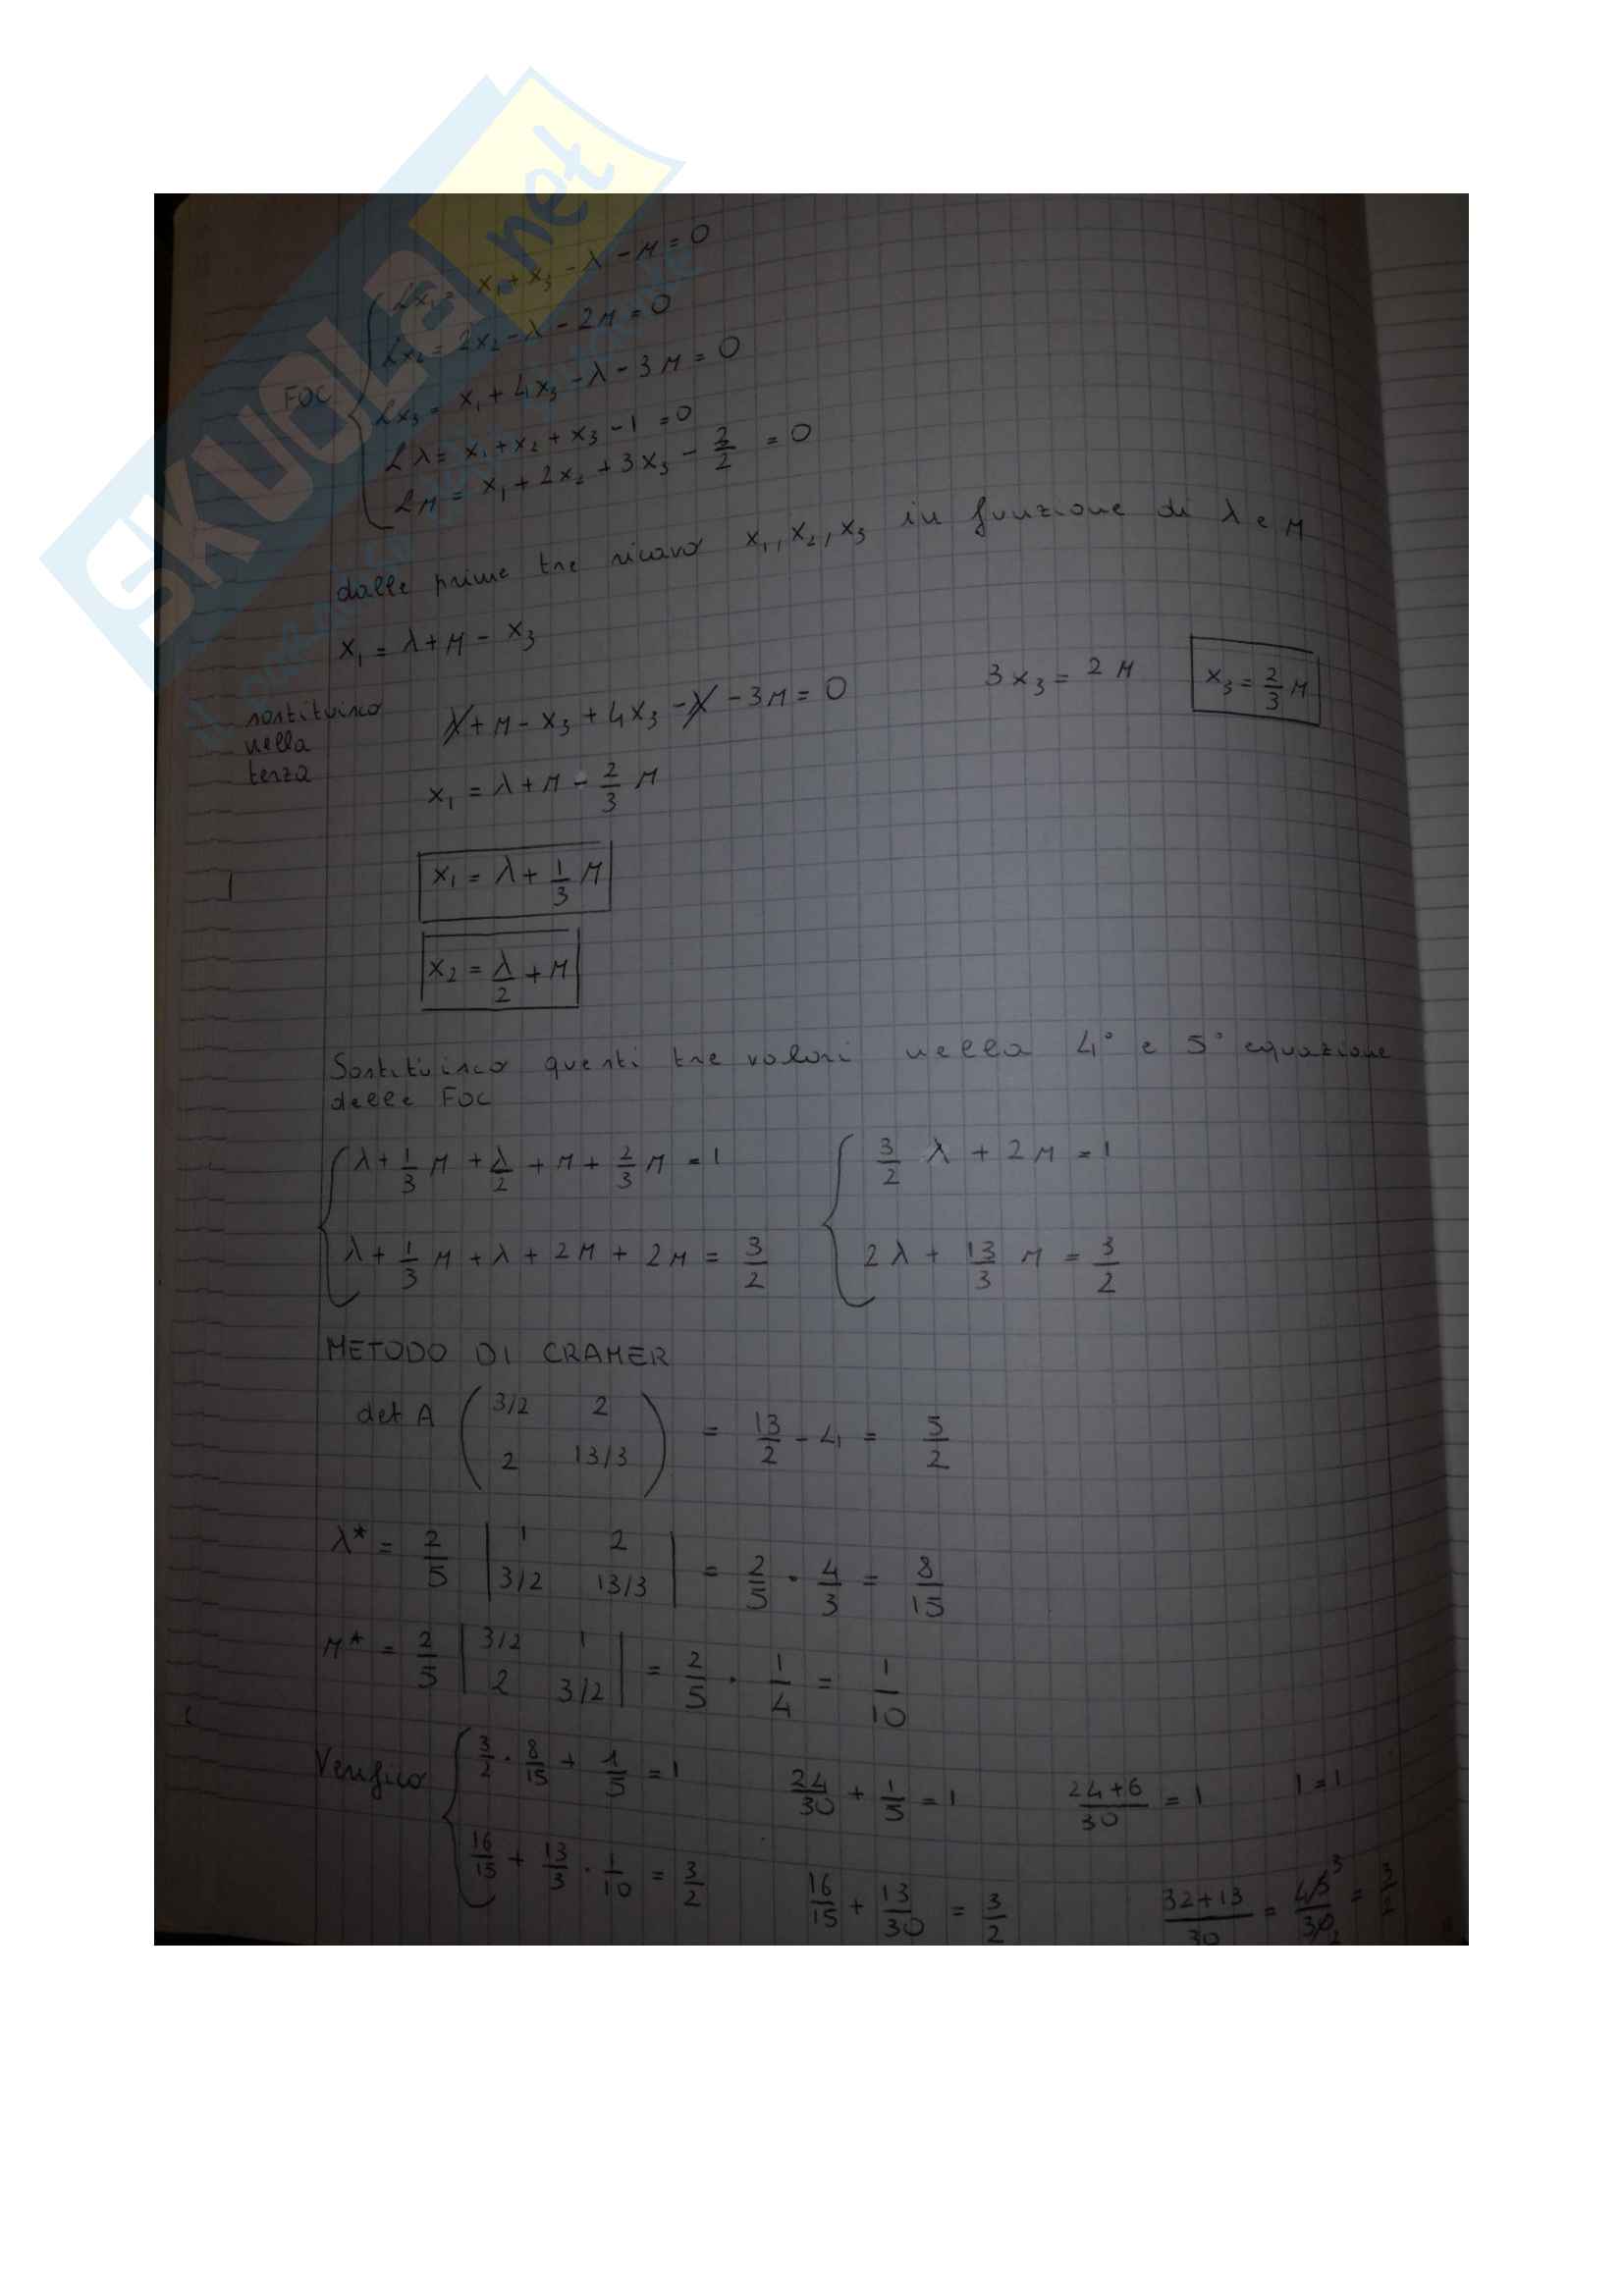 SKUOLA.net
FOC
Lx₁ = x₁ + x₃ - λ - M = 0
Lx₂ = 2x₂ - λ - 2M = 0
Lx₃ = x₁ + 4x₃ - λ - 3M = 0
Lλ = x₁ + x₂ + x₃ - 1 = 0
LM = x₁ + 2x₂ + 3x₃ - 3/2 = 0
dalle prime tre ricavo x₁, x₂, x₃ in funzione di λ e M
x₁ = λ + M - x₃
sostituisco nella terza
λ + M - x₃ + 4x₃ - λ - 3M = 0 3x₃ = 2M x₃ = 2/3 M
x₁ = λ + M - 2/3 M
x₁ = λ + 1/3 M
x₂ = λ/2 + M
Sostituisco questi tre valori nella 4° e 5° equazione
delle FOC
λ + 1/3 M + λ/2 + M + 2/3 M = 1 3/2 λ + 2M = 1
λ + 1/3 M + λ + 2M + 2M = 3/2 2λ + 13/3 M = 3/2
METODO DI CRAMER
det A ( 3/2 2
2 13/3 ) = 13/2 - 4 = 5/2
λ* = 2/5 | 1 2
3/2 13/3 | = 2/5 · 4/3 = 8/15
M* = 2/5 | 3/2 1
2 3/2 | = 2/5 · 1/4 = 1/10
Verifico
3/2 · 8/15 + 1/5 = 1 24/30 + 1/5 = 1 24+6/30 = 1 1 = 1
16/15 + 13/3 · 1/10 = 3/2 16/15 + 13/30 = 3/2 32+13/30 = 45/30 3 2 = 3/2